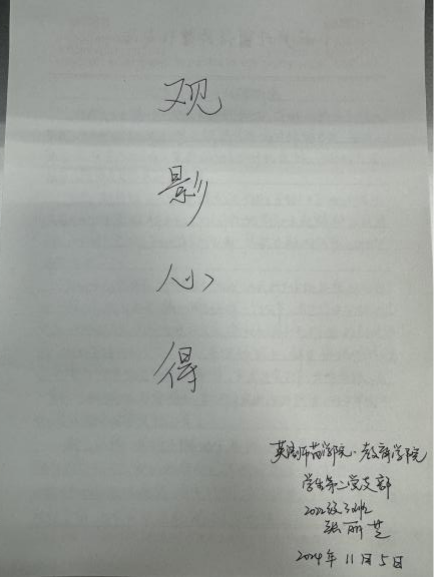 观
影
心
得
学院·教育学院
学生第二党支部
2022级3班
张丽芝
2024年11月5日